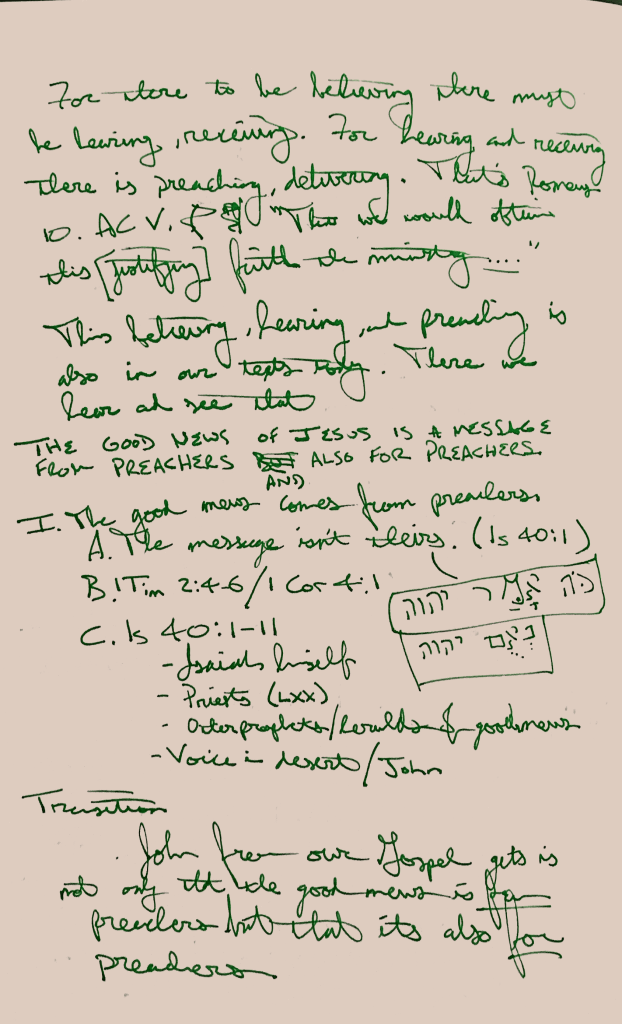 For there to be believing there must
be hearing, receiving. For hearing and receiving
there is preaching, delivering. That's Romans
10. AC V. "That we would obtain
this [justifying] faith the ministry ...."
This believing, hearing, and preaching is
also in our texts today. There we
hear and see that
THE GOOD NEWS OF JESUS IS A MESSAGE
FROM PREACHERS AND ALSO FOR PREACHERS.
I. The good news comes from preachers.
A. The message isn't theirs. (Is 40:1)
כֹּה אָמַר יהוה
B. 1 Tim 2:4-6/1 Cor 4:1
נְאֻם יהוה
C. Is 40:1-11
- Isaiah himself
- Priests (LXX)
- Other prophets/heralds of good news
- Voice in desert/John
Transition
John from our Gospel gets is
not only tht the good news is from
preachers but that its also for
preachers.